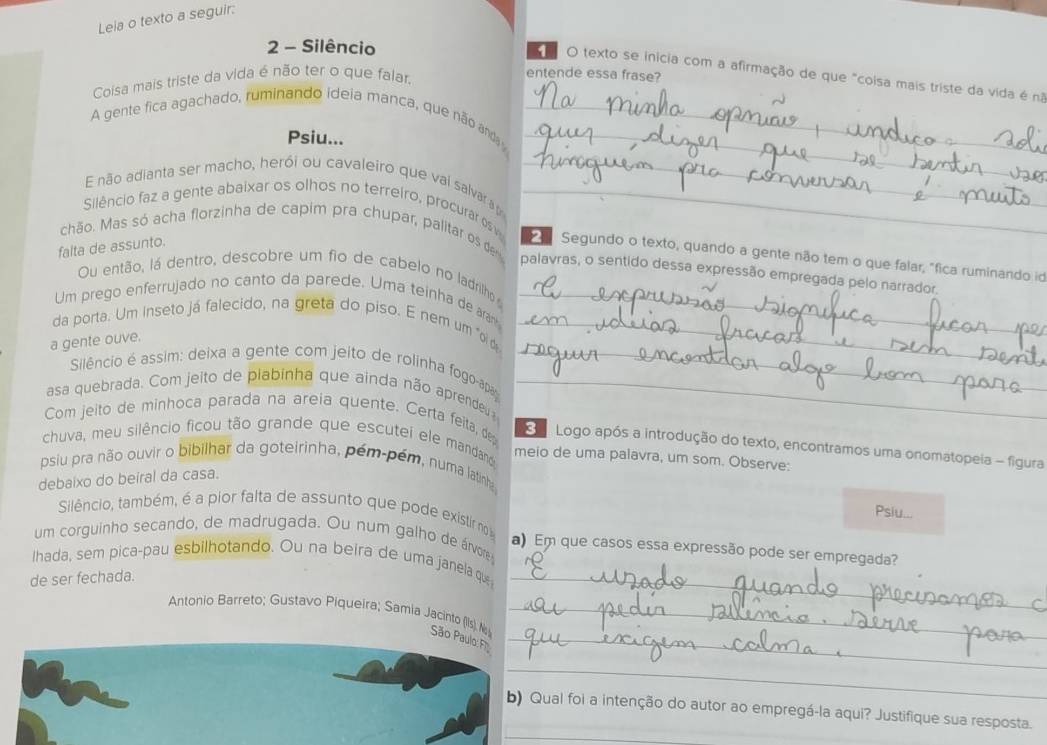 Leia o texto a seguir:
2 – Silêncio
Coisa mais triste da vida é não ter o que falar.
A gente fica agachado, ruminando ideia manca, que não anda
Psiu...
E não adianta ser macho, herói ou cavaleiro que vai salvar a
Silêncio faz a gente abaixar os olhos no terreiro, procurar os
chão. Mas só acha florzinha de capim pra chupar, palitar os den
falta de assunto.
Ou então, lá dentro, descobre um fio de cabelo no ladrilho
Um prego enferrujado no canto da parede. Uma teinha de aran
da porta. Um inseto já falecido, na greta do piso. E nem um "oi de
a gente ouve.
Silêncio é assim: deixa a gente com jeito de rolinha fogo-apag
asa quebrada. Com jeito de piabinha que ainda não aprendeu a
Com jeito de minhoca parada na areia quente. Certa feita, de
chuva, meu silêncio ficou tão grande que escutei ele mandand
psiu pra não ouvir o bibilhar da goteirinha, pém-pém, numa latinha,
debaixo do beiral da casa.
Silêncio, também, é a pior falta de assunto que pode existir no
um corguinho secando, de madrugada. Ou num galho de árvore
lhada, sem pica-pau esbilhotando. Ou na beira de uma janela que
de ser fechada.
Antonio Barreto; Gustavo Piqueira; Samia Jacinto (Ils).
São Paulo: FTD,
1 O texto se inicia com a afirmação de que "coisa mais triste da vida é nã
entende essa frase?
Na minha opnião, indica
quer dizer que se sentir
ninguém pra conversar é muito
2 Segundo o texto, quando a gente não tem o que falar, "fica ruminando id
palavras, o sentido dessa expressão empregada pelo narrador.
A expressão significa ficar pe
em ideias fracas e sem sent
seguir encontrar algo bom para
3 Logo após a introdução do texto, encontramos uma onomatopeia – figura
meio de uma palavra, um som. Observe:
Psiu...
a) Em que casos essa expressão pode ser empregada?
É usado quando precisamos c
ou pedir silêncio. Serve para
que exigem calma.
b) Qual foi a intenção do autor ao empregá-la aqui? Justifique sua resposta.